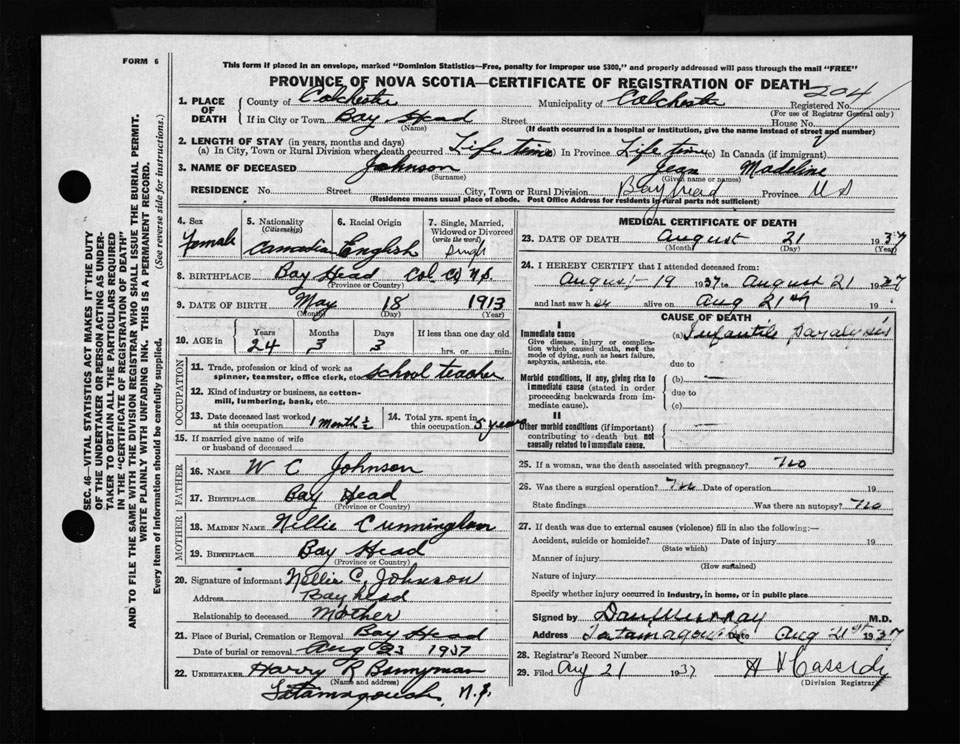 FORM 6
This form if placed in an envelope, marked "Dominion Statistics—Free, penalty for improper use $300," and properly addressed will pass through the mail "FREE"
PROVINCE OF NOVA SCOTIA—CERTIFICATE OF REGISTRATION OF DEATH
204
1. PLACE OF DEATH County of Colchester Municipality of Colchester Registered No.
(For use of Registrar General only)
If in City or Town Bay Head Street House No.
(Name) (If death occurred in a hospital or institution, give the name instead of street and number)
2. LENGTH OF STAY (in years, months and days)
(a) In City, Town or Rural Division where death occurred Life time (b) In Province Life time (c) In Canada (if immigrant)
3. NAME OF DECEASED Johnson Jean Madeline
(Surname) (Given name or names)
RESIDENCE No. Street City, Town or Rural Division Bayhead Province NS
(Residence means usual place of abode. Post Office Address for residents in rural parts not sufficient)
4. Sex Female
5. Nationality (Citizenship) Canadian
6. Racial Origin English
7. Single, Married, Widowed or Divorced (write the word) Single
8. BIRTHPLACE Bay Head Col. Co. N.S.
(Province or Country)
9. DATE OF BIRTH May 18 1913
(Month) (Day) (Year)
10. AGE in Years 24 Months 3 Days 3 If less than one day old
hrs. or min.
OCCUPATION
11. Trade, profession or kind of work as spinner, teamster, office clerk, etc. School teacher
12. Kind of industry or business, as cotton-mill, lumbering, bank, etc.
13. Date deceased last worked at this occupation 1 Month ½
14. Total yrs. spent in this occupation 5 years
15. If married give name of wife or husband of deceased
FATHER
16. NAME W C Johnson
17. BIRTHPLACE Bay Head
(Province or Country)
MOTHER
18. MAIDEN NAME Nellie Cunningham
19. BIRTHPLACE Bay Head
(Province or Country)
20. Signature of informant Nellie C. Johnson
Address Bayhead
Relationship to deceased Mother
21. Place of Burial, Cremation or Removal Bay Head
Date of burial or removal Aug 23 1937
22. UNDERTAKER Harry R
(Name and address)
Tatamagouche, N.S.
MEDICAL CERTIFICATE OF DEATH
23. DATE OF DEATH August 21 1937
(Month) (Day) (Year)
24. I HEREBY CERTIFY that I attended deceased from:
August 19 1937 to August 21 1937
and last saw her alive on Aug 21st 19
CAUSE OF DEATH
I
Immediate cause
Give disease, injury or complication which caused death, not the mode of dying, such as heart failure, asphyxia, asthenia, etc.
(a) Infantile paralysis
due to
Morbid conditions, if any, giving rise to immediate cause (stated in order proceeding backwards from immediate cause).
(b)
due to
(c)
II
Other morbid conditions (if important) contributing to death but not causally related to immediate cause.
25. If a woman, was the death associated with pregnancy? no
26. Was there a surgical operation? no Date of operation 19
State findings Was there an autopsy? no
27. If death was due to external causes (violence) fill in also the following:—
Accident, suicide or homicide? Date of injury 19
(State which)
Manner of injury
(How sustained)
Nature of injury
Specify whether injury occurred in Industry, in home, or in public place
Signed by Dan Murray M.D.
Address Tatamagouche Date Aug 21st 1937
28. Registrar's Record Number
29. Filed Aug 21 1937
(Division Registrar)
SEC. 46—VITAL STATISTICS ACT MAKES IT THE DUTY
OF THE UNDERTAKER OR PERSON ACTING AS UNDER-
TAKER TO OBTAIN ALL THE PARTICULARS REQUIRED
IN THE "CERTIFICATE OF REGISTRATION OF DEATH"
AND TO FILE THE SAME WITH THE DIVISION REGISTRAR WHO SHALL ISSUE THE BURIAL PERMIT.
WRITE PLAINLY WITH UNFADING INK. THIS IS A PERMANENT RECORD.
Every item of information should be carefully supplied. (See reverse side for instructions.)